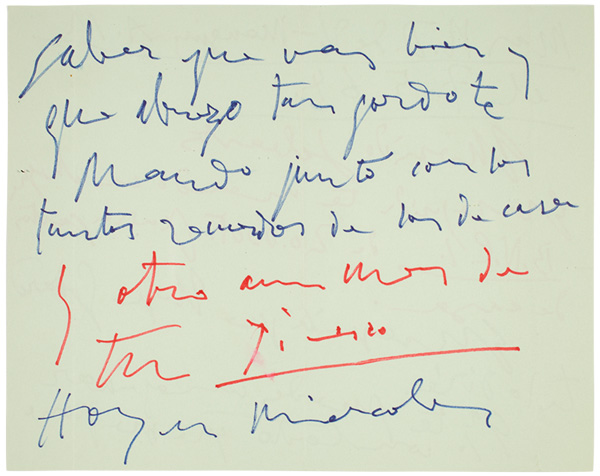 saber que vas bien y
que abrazo tan gordo te
Mando junto con los
tantos recuerdos de los de casa
y otro aun mas de
tu Picasso
Hoy es Miercoles